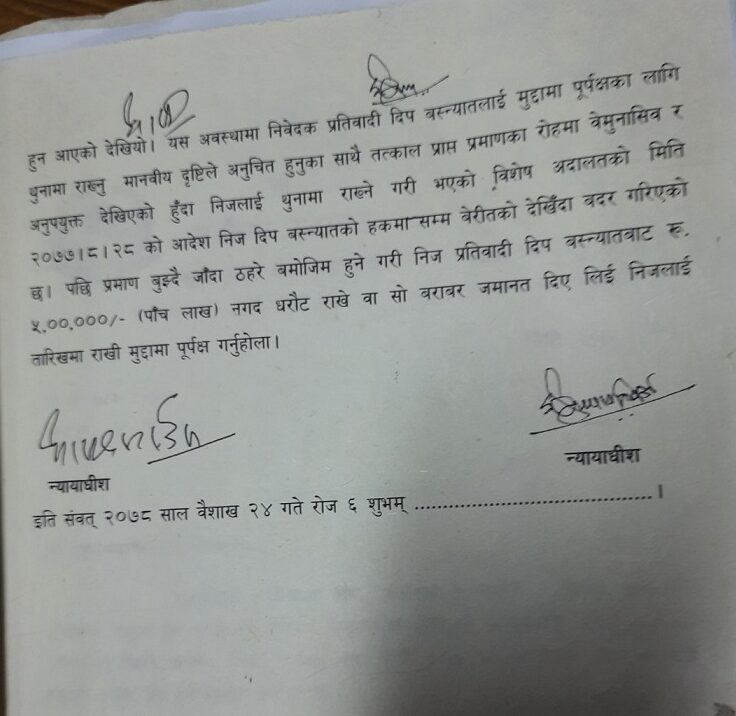 हुन आएको देखियो। यस अवस्थामा निवेदक प्रतिवादी दिप बस्न्यातलाई मुद्दामा पूर्पक्षका लागि
थुनामा राख्नु मानवीय दृष्टिले अनुचित हुनुका साथै तत्काल प्राप्त प्रमाणका रोहमा वेमुनासिव र
अनुपयुक्त देखिएको हुँदा निजलाई थुनामा राख्ने गरी भएको विशेष अदालतको मिति
२०७७।८।२८ को आदेश निज दिप बस्न्यातको हकमा सम्म वेरीतको देखिँदा बदर गरिएको
छ। पछि प्रमाण बुझ्दै जाँदा ठहरे बमोजिम हुने गरी निज प्रतिवादी दिप बस्न्यातबाट रू.
५,००,०००/- (पाँच लाख) नगद धरौट राखे वा सो बराबर जमानत दिए लिई निजलाई
तारिखमा राखी मुद्दामा पूर्पक्ष गर्नुहोला।
न्यायाधीश
न्यायाधीश
इति संवत् २०७८ साल वैशाख २४ गते रोज ६ शुभम् ........................................।